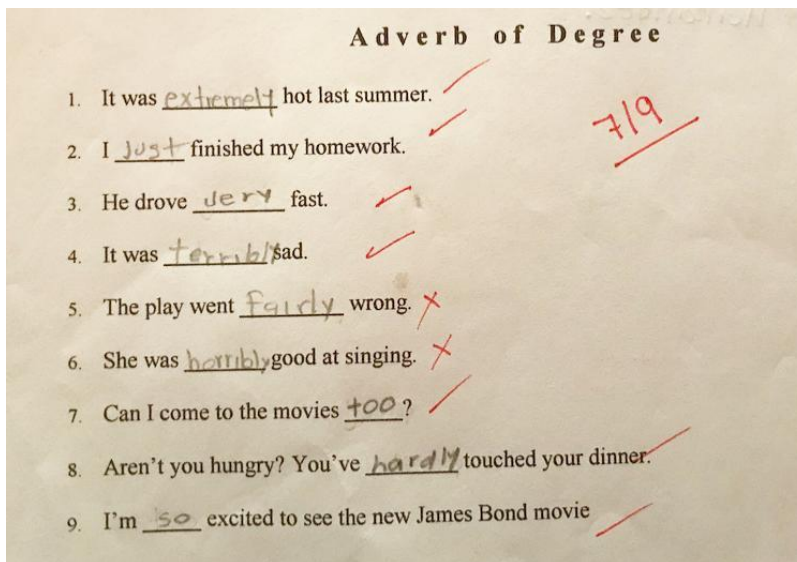 Adverb of Degree
1. It was extremely hot last summer.
7/9
2. I Just finished my homework.
3. He drove very fast.
4. It was terribly sad.
5. The play went fairly wrong.
6. She was horribly good at singing.
7. Can I come to the movies too?
8. Aren't you hungry? You've hardly touched your dinner.
9. I'm so excited to see the new James Bond movie